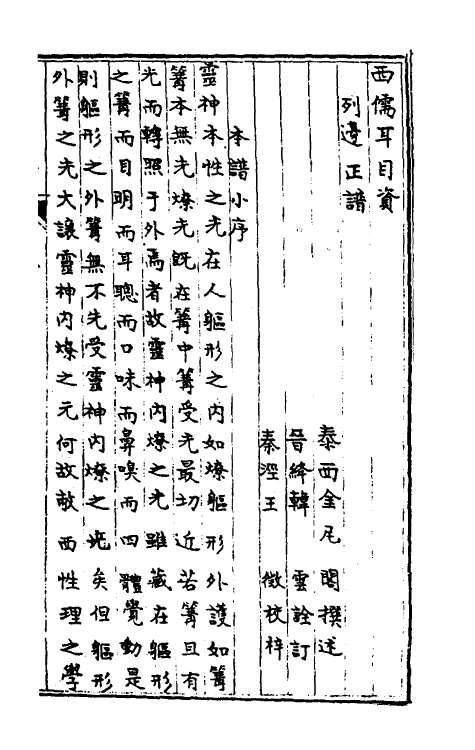 西儒耳目資
列邊正譜
泰西金尼閣撰述
晉絳韓雲詮訂
秦涇王徵校梓
本譜小序
靈神本性之光在人軀形之內如燎軀形外護如篝
篝本無光燎光旣在篝中篝受光最切近若篝且有
光而轉照于外焉者故靈神內燎之光雖藏在軀形
之篝而目明而耳聰而口味而鼻嗅而四體覺動是
則軀形之外篝無不先受靈神內燎之光矣但軀形
外篝之光大讓靈神內燎之元何故敝西性理之學